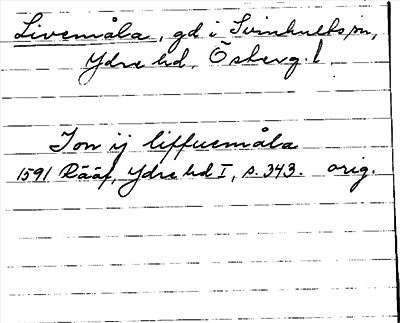 Livemåla, gd i Svinhults sn,
Ydre hd, Östergl.
Jon ij liffuemåla
1591 Rääf, Ydre hd I, s. 343. orig.